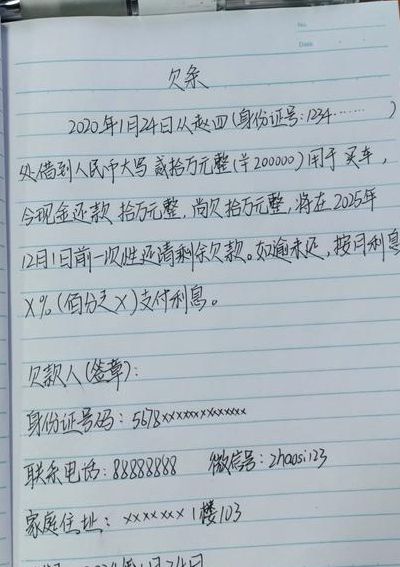 No.
Date
欠条
2020年1月24日从赵四(身份证号:1234……)
处借到人民币大写 贰拾万元整(¥200000)用于买车,
今现金还款 拾万元整,尚欠拾万元整,将在2025年
12月1日前一次性还清剩余欠款。如逾未还,按月利息
X%(佰分之X)支付利息。
欠款人(签章):
身份证号码:5678xxxxxxxxxxxxx
联系电话:88888888 微信号:zhaosi123
家庭住址:xxxxxx1楼103